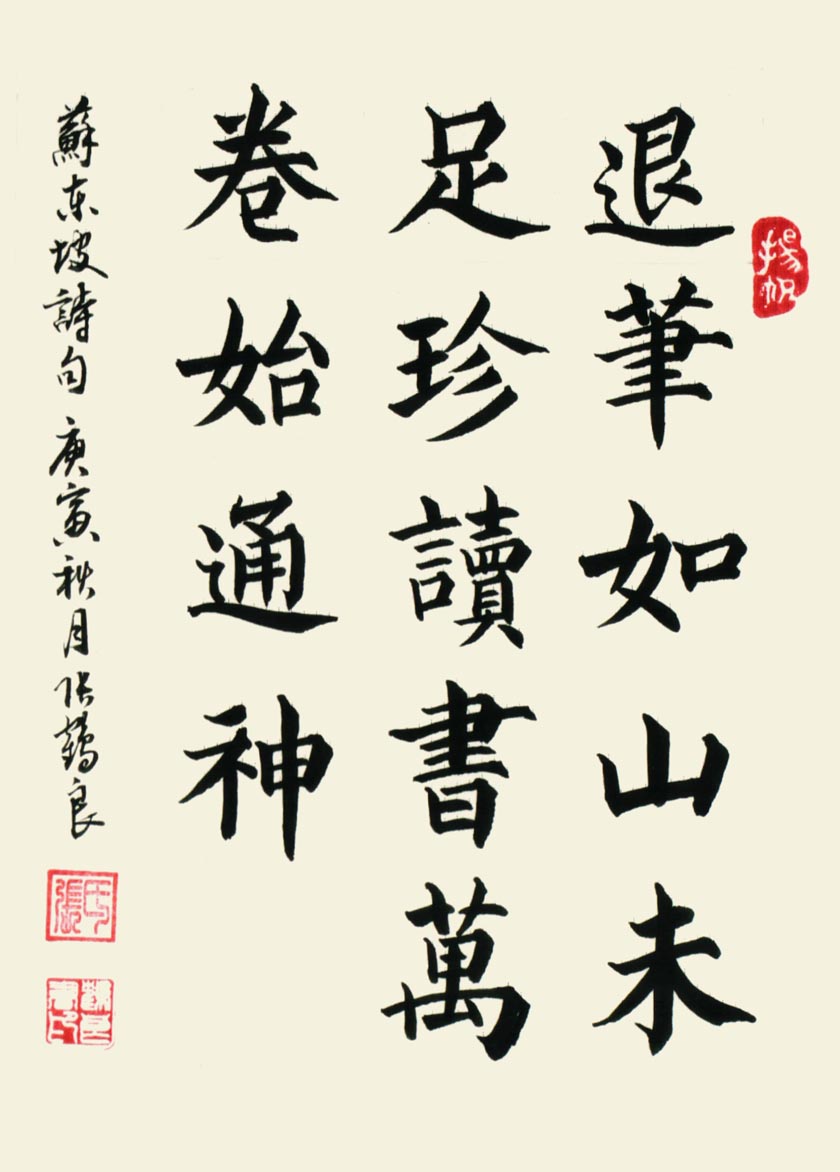 退筆如山未
足珍讀書萬
卷始通神
蘇东坡詩句 庚寅秋月张鶴良
揚帆
張氏